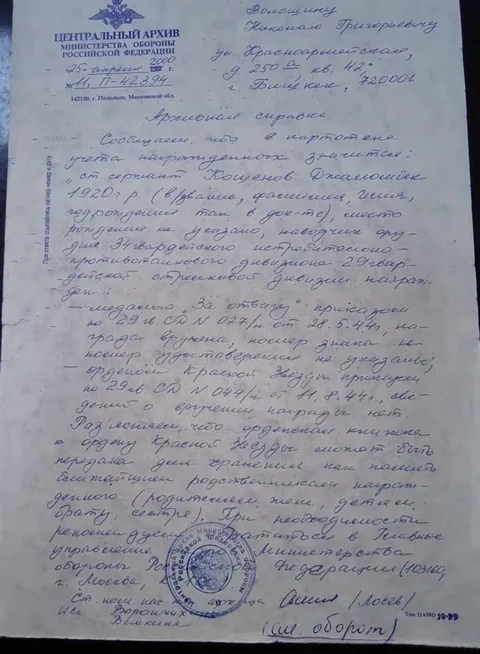 ЦЕНТРАЛЬНЫЙ АРХИВ
МИНИСТЕРСТВА ОБОРОНЫ
РОССИЙСКОЙ ФЕДЕРАЦИИ
"25" апреля 2000
№ 11, П-42394
142100, г. Подольск, Московской обл.
Волошину
Николаю Григорьевичу
ул. Красноармейская,
д. 250 а кв. 42
г. Бишкек, 720001
При ответе ссылайтесь на наш номер и дату
Архивная справка.
Сообщаем, что в картотеке
учета награжденных значится:
"ст сержант Кощенов
1920 г р (в/звание, фамилия, имя,
год рождения так в док-те), место
рождения не указано, наводчик ору-
дия 34 гвардейского истребительно-
противотанкового дивизиона 29 гвар-
дейской стрелковой дивизии награж-
ден:
— медалью "За отвагу" приказом
по 29 гв СД N 027/н от 28.5.44г, на-
града вручена, номер знака и
номер удостоверения не указаны;
— орденом Красной Звезды приказом
по 29 гв СД N 044/н от 11.8.44г, све-
дений о вручении награды нет.
Разъясняем, что орденская книжка
к ордену Красной Звезды может быть
передана для хранения как память
ближайшим родственникам награж-
денного (родителям, жене, детям,
брату, сестре). При необходимости
рекомендуем обратиться в Главное
управление Министерства
обороны Федерации (103160,
г. Москва,
Ст. архива (Лосев)
Исп.
(см. оборот)
Тип. ЦАМО